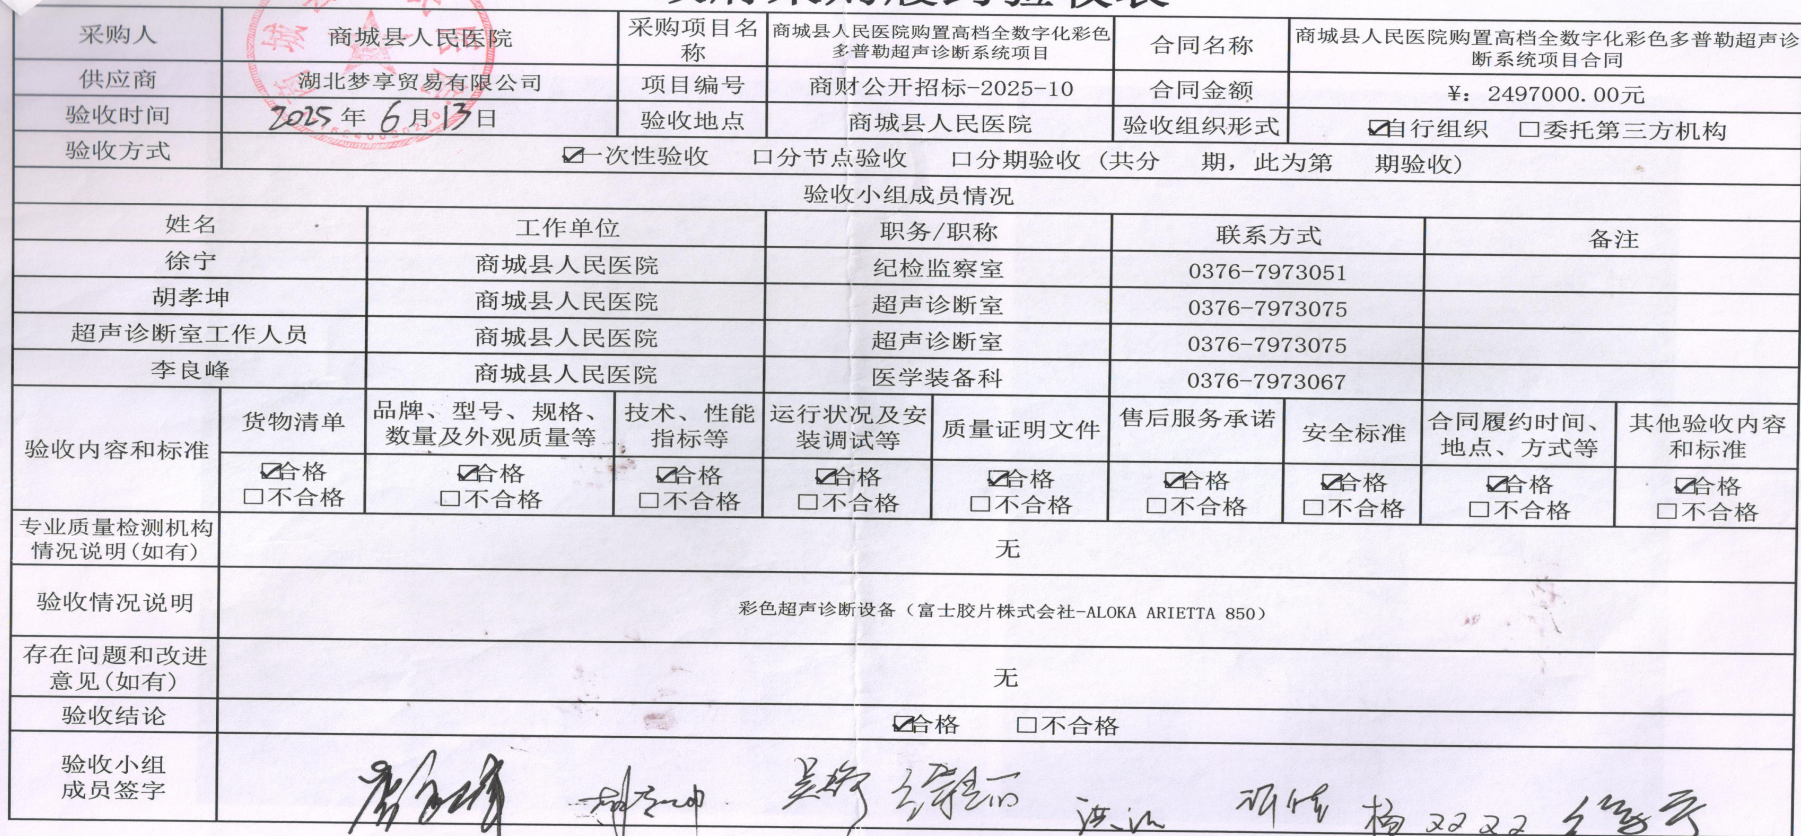 采购人 商城县人民医院 采购项目名称 商城县人民医院购置高档全数字化彩色多普勒超声诊断系统项目 合同名称 商城县人民医院购置高档全数字化彩色多普勒超声诊断系统项目合同
供应商 湖北梦享贸易有限公司 项目编号 商财公开招标-2025-10 合同金额 ¥：2497000.00元
验收时间 2025年6月13日 验收地点 商城县人民医院 验收组织形式 ☑自行组织 □委托第三方机构
验收方式 ☑一次性验收 □分节点验收 □分期验收（共分 期，此为第 期验收）
验收小组成员情况
姓名 工作单位 职务/职称 联系方式 备注
徐宁 商城县人民医院 纪检监察室 0376-7973051
胡孝坤 商城县人民医院 超声诊断室 0376-7973075
超声诊断室工作人员 商城县人民医院 超声诊断室 0376-7973075
李良峰 商城县人民医院 医学装备科 0376-7973067
验收内容和标准 货物清单 品牌、型号、规格、数量及外观质量等 技术、性能指标等 运行状况及安装调试等 质量证明文件 售后服务承诺 安全标准 合同履约时间、地点、方式等 其他验收内容和标准
☑合格 ☑合格 ☑合格 ☑合格 ☑合格 ☑合格 ☑合格 ☑合格 ☑合格
□不合格 □不合格 □不合格 □不合格 □不合格 □不合格 □不合格 □不合格 □不合格
专业质量检测机构情况说明(如有) 无
验收情况说明 彩色超声诊断设备（富士胶片株式会社-ALOKA ARIETTA 850）
存在问题和改进意见(如有) 无
验收结论 ☑合格 □不合格
验收小组
成员签字